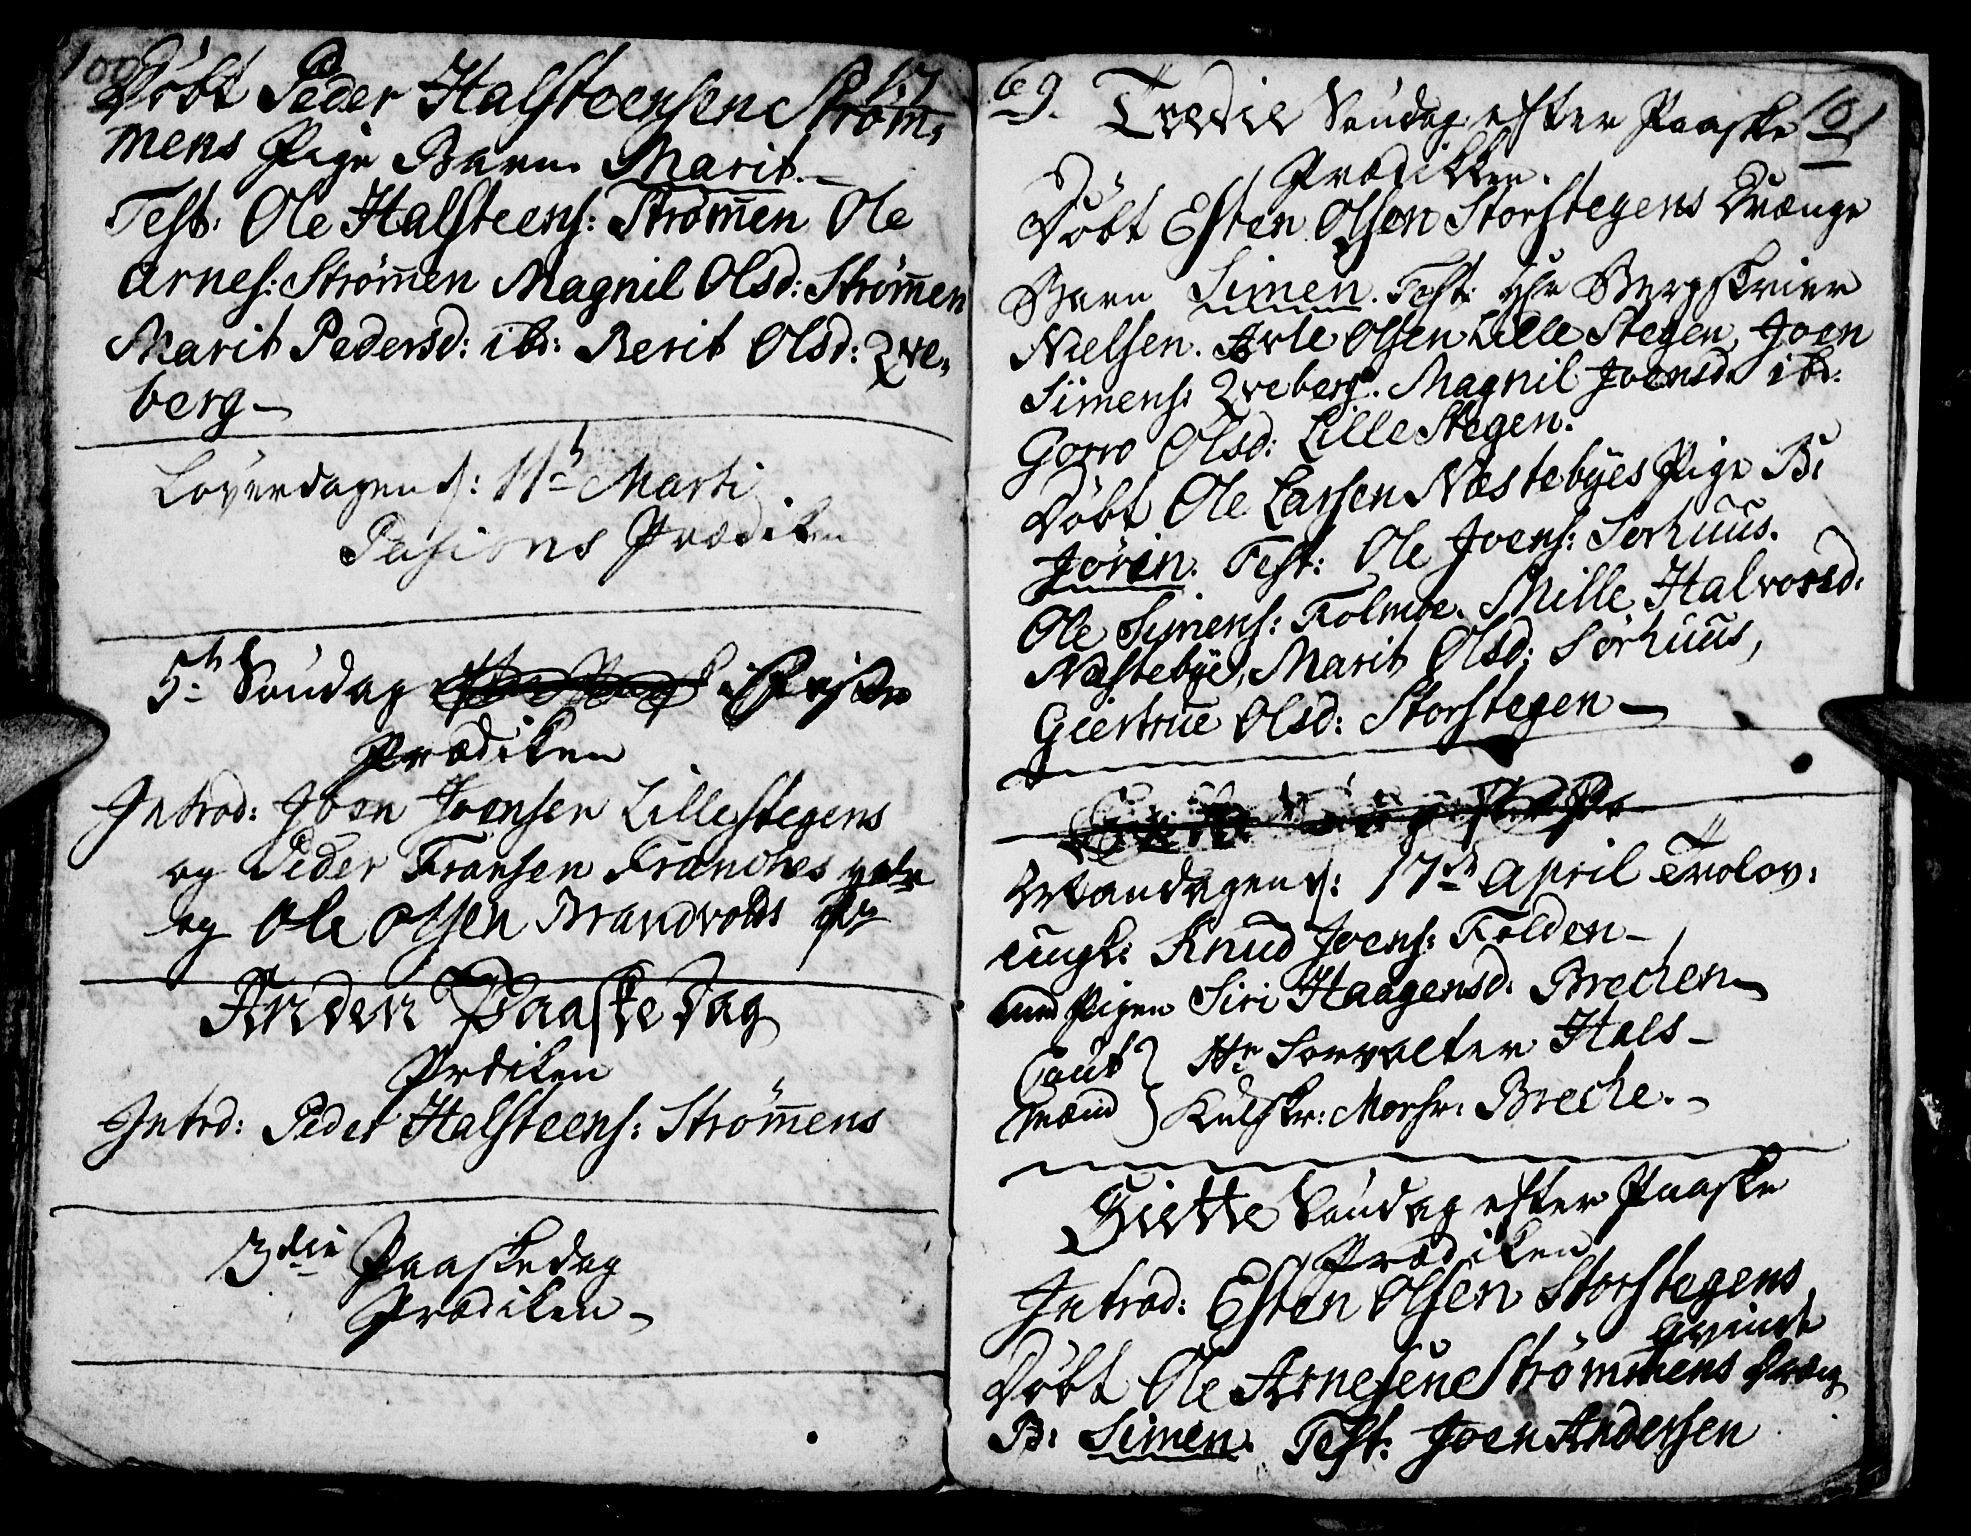 100
17
Döbt Peder Halsteensen Ström,
mens Pige Barn Marit.
Test: Ole Halsteens: Strömen Ole
Arnes: Strömen Magnil Olsd: Strömen
Marit Pedersd: ibd: Berit Olsd: Qve,
berg
Löverdagen d: 11te Marti
Pasions Prædiken
5te Söndag i Faste
Prædiken
Introd: Joen Joensen Lillestegens
og Peder Fransen Franches
og Ole Olsen Brandvolds
Anden Paaske Dag
Prdiken
Intrd: Peder Halsteens: Strömens
3die Paaskedag
Prædiken
69.
101
Tredie Söndag efter Paaske
Prædikken.
Döbt Esten Olsen Storstegens Drænge
Barn Simen. Test: Hr Bergskriver
Nielsen. Arle Olsen Lille Stegen, Joen
Simens: Qveberg. Magnil Joensd: ibd:
Gorro Olsd: Lille Stegen.
Döbt Ole Larsen Næstebyes Pige B:
Jören. Test: Ole Joens: Sørhuus.
Ole Simens: Tolmoe. Mille Halvorsd:
Næstebye, Marit Olsd: Sørhuus,
Giertrue Olsd: Storstegen
Mandagen d: 17de April Trolov:
ungk: Knud Joens: Folden
med Pigen Siri Haagensd: Brechen
Caut Hr Forvalter Hals
Mænd Kulskr: Monsr: Breche.
Siette Söndag efter Paaske
Prædiken
Introd: Esten Olsen Storstegens
Qvinde
Döbt Ole Arnesen Strömmens Dræng
B: Simen. Test: Joen Andersen